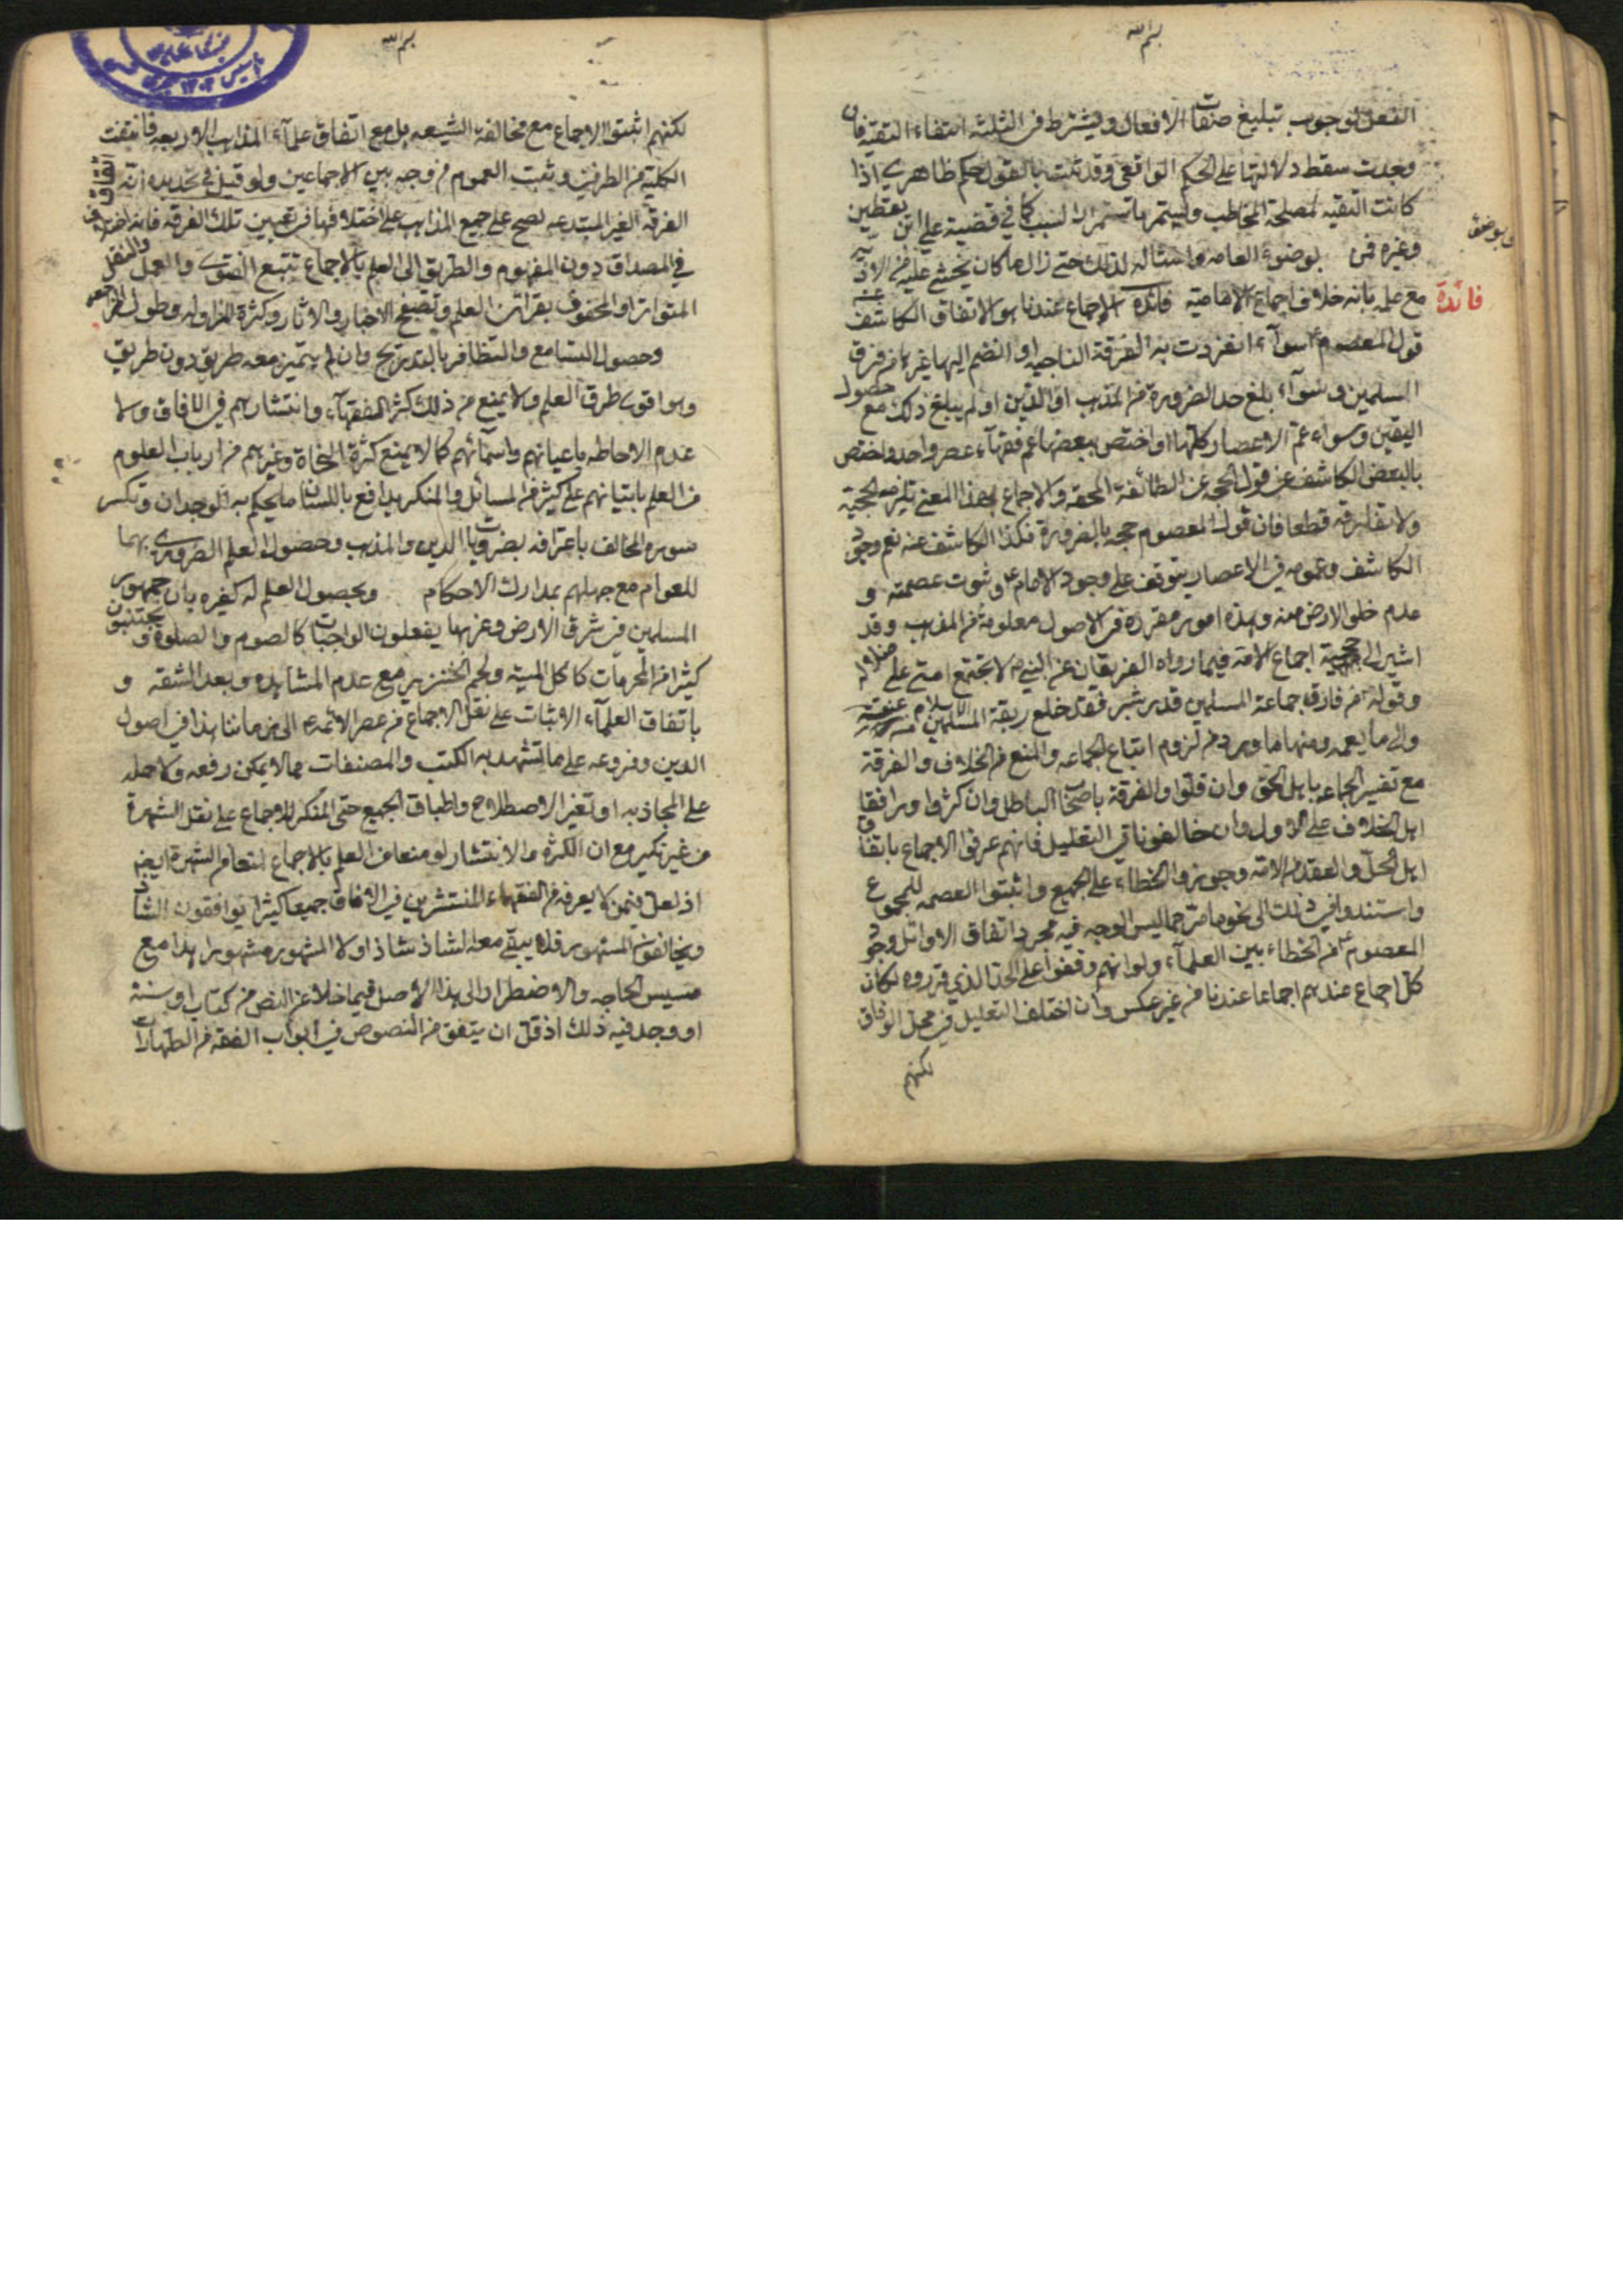 بسم الله
الفعل لوجوب تبليغ صفات الافعال ويشترط في الثلثة انتفاء التقية فان
وجدت سقط دلالتها على الحكم الواقعي وقد ثبت بالقول حكم ظاهري اذا
كانت التقية لمصلحة المخاطب ويستمر باستمرار السبب كما في قضية علي ابن يقطين
وغيره في بوضوء العامه وامتثاله لذلك حتى زال ما كان يخشى عليه من الاذية
مع علمه بانه خلاف اجماع الامامية فائدة الاجماع عندنا هو الاتفاق الكاشف عن
فائدة
قول المعصوم ع سوآء انفردت به الفرقة الناجيه او انضم اليها غيرها من فرق
المسلمين وسوآء بلغ حد الضرورة من المذهب او الدين او لم يبلغ ذلك مع حصول
اليقين وسواء عم الاعصار كلها او اختص ببعضها عم فقهآء عصر واحد واختص
بالبعض الكاشف عن قول الحجه عن الطائفة المحقه والاجماع بهذا المعنى تلزمه الحجية
ولا تفارقه قطعا فان قول المعصوم حجه بالضرورة فكذا الكاشف عنه نعم وجود
الكاشف وعمومه في الاعصار يتوقف على وجود الامام ع وثبوت عصمته و
عدم خلو الارض منه وهذه امور مقررة في الاصول معلومة من المذهب وقد
اشير الى حجية اجماع الامة فيما رواه الفريقان عن النبي ص لا تجتمع امتي على ضلالة
وقوله من فارق جماعة المسلمين قدر شبر فقد خلع ربقة الاسلام من عنقه
والى ما يعمه ومنها ما ورد من لزوم اتباع الجماعه والمنع من الخلاف والفرقة
مع تفسير الجماعه باهل الحق وان قلوا والفرقة باصحاب الباطل وان كثروا ووافقنا
اهل الخلاف على الاول وان خالفونا في التعليل فانهم عرفوا الاجماع باتفاق
اهل الحل والعقد من الامة وجوزوا الخطاء على الجميع واثبتوا العصمه للمجموع
واستندوا في ذلك الى نحو ما مر مما ليس الوجه فيه مجرد اتفاق الاوائل وجود
المعصوم ع من الخطاء بين العلمآء ولو انهم وقفوا على الحد الذي قرروه لكان
كل اجماع عندهم اجماعا عندنا من غير عكس وان اختلف التعليل في محل الوفاق
لكنهم
بسم الله
لكنهم اثبتوا الاجماع مع مخالفة الشيعه بل مع اتفاق علمآء المذاهب الاربعه فانتفت
الكلية من الطرفين وثبت العموم من وجه بين الاجماعين ولو قيل في تحديده انه اتفاق
الفرقة الغير المبتدعه لصح على جميع المذاهب على اختلافها في تعيين تلك الفرقه فانه اختلاف
في المصداق دون المفهوم والطريق الى العلم بالاجماع تتبع الفتوى والعمل والنقل
المتواتر او المحفوف بقرائن العلم وتصفح الاخبار والاثار وكثرة المزاوله وطول المراجعه
وحصول التسامع والتظافر بالتدريج وان لم يتميز معه طريق دون طريق
وهو اقوى طرق العلم ولا يمنع من ذلك كثرة الفقهآء وانتشارهم في الافاق ولا
عدم الاحاطه باعيانهم واسمآئهم كما لا يمنع كثرة النحاة وغيرهم من ارباب العلوم
من العلم باتيانهم على كثير من المسائل والمنكر يدافع باللسان ما يحكم به الوجدان وتكسر
سورة المخالف باعترافه بضروريات الدين والمذهب وحصول العلم الضروري بهما
للعوام مع جهلهم بمدارك الاحكام وبحصول العلم له كغيره بان جمهور
المسلمين في شرق الارض وغربها يفعلون الواجبات كالصوم والصلوة ويجتنبون
كثيرا من المحرمات كاكل الميته ولحم الخنزير مع عدم المشاهده وبعد الشقه و
باتفاق العلمآء الاثبات على نقل الاجماع من عصر الائمه ع الى زماننا هذا في اصول
الدين وفروعه على ما تشهد به الكتب والمصنفات مما لا يمكن رفعه ولا حمله
على المجاذبه او تغير الاصطلاح واطباق الجميع حتى المنكر للاجماع على نقل الشهرة
من غير نكير مع ان الكثرة والانتشار لو منعا من العلم بالاجماع لمنعا من الشهرة ايضا
اذ لعل فيمن لا يعرفه من الفقهاء المنتشرين في الافاق جميعا كثيرا يوافقون الشاذ
ويخالفون المشهور فلا يبقى معه الشاذ شاذا ولا المشهور مشهورا هذا مع
مسيس الحاجه والاضطرار الى هذا الاصل فيما خلا عن النص من كتاب او سنة
او وجد فيه ذلك اذ قل ان يتفق من النصوص في ابواب الفقه من الطهارات